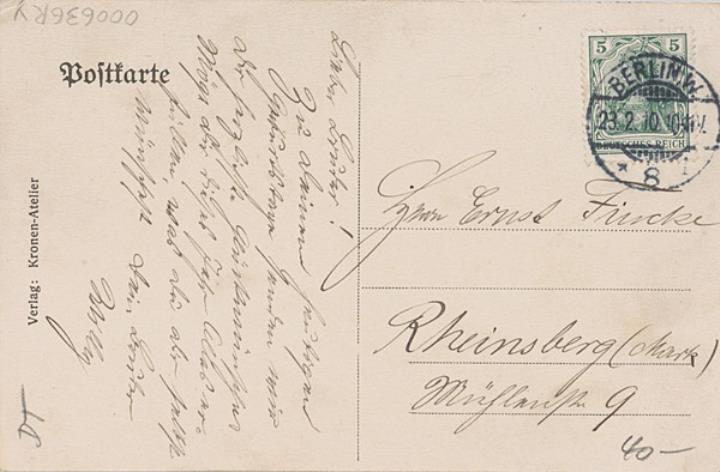 000636RY
Postkarte
Verlag: Kronen-Atelier
Lieber Bruder!
Zu deinem heutigen
Geburtstage senden wir
dir herzlichste Glückwünsche
Möge dir dieses Jahr Alles er-
füllen, was du dir selbst
wünschst dein Bruder
Willy
5 5
DEUTSCHES REICH
BERLIN.W.
23.2.10.10-11V.
* 8
Herrn Ernst Fincke
Rheinsberg (Mark)
Mühlenstr 9
40-